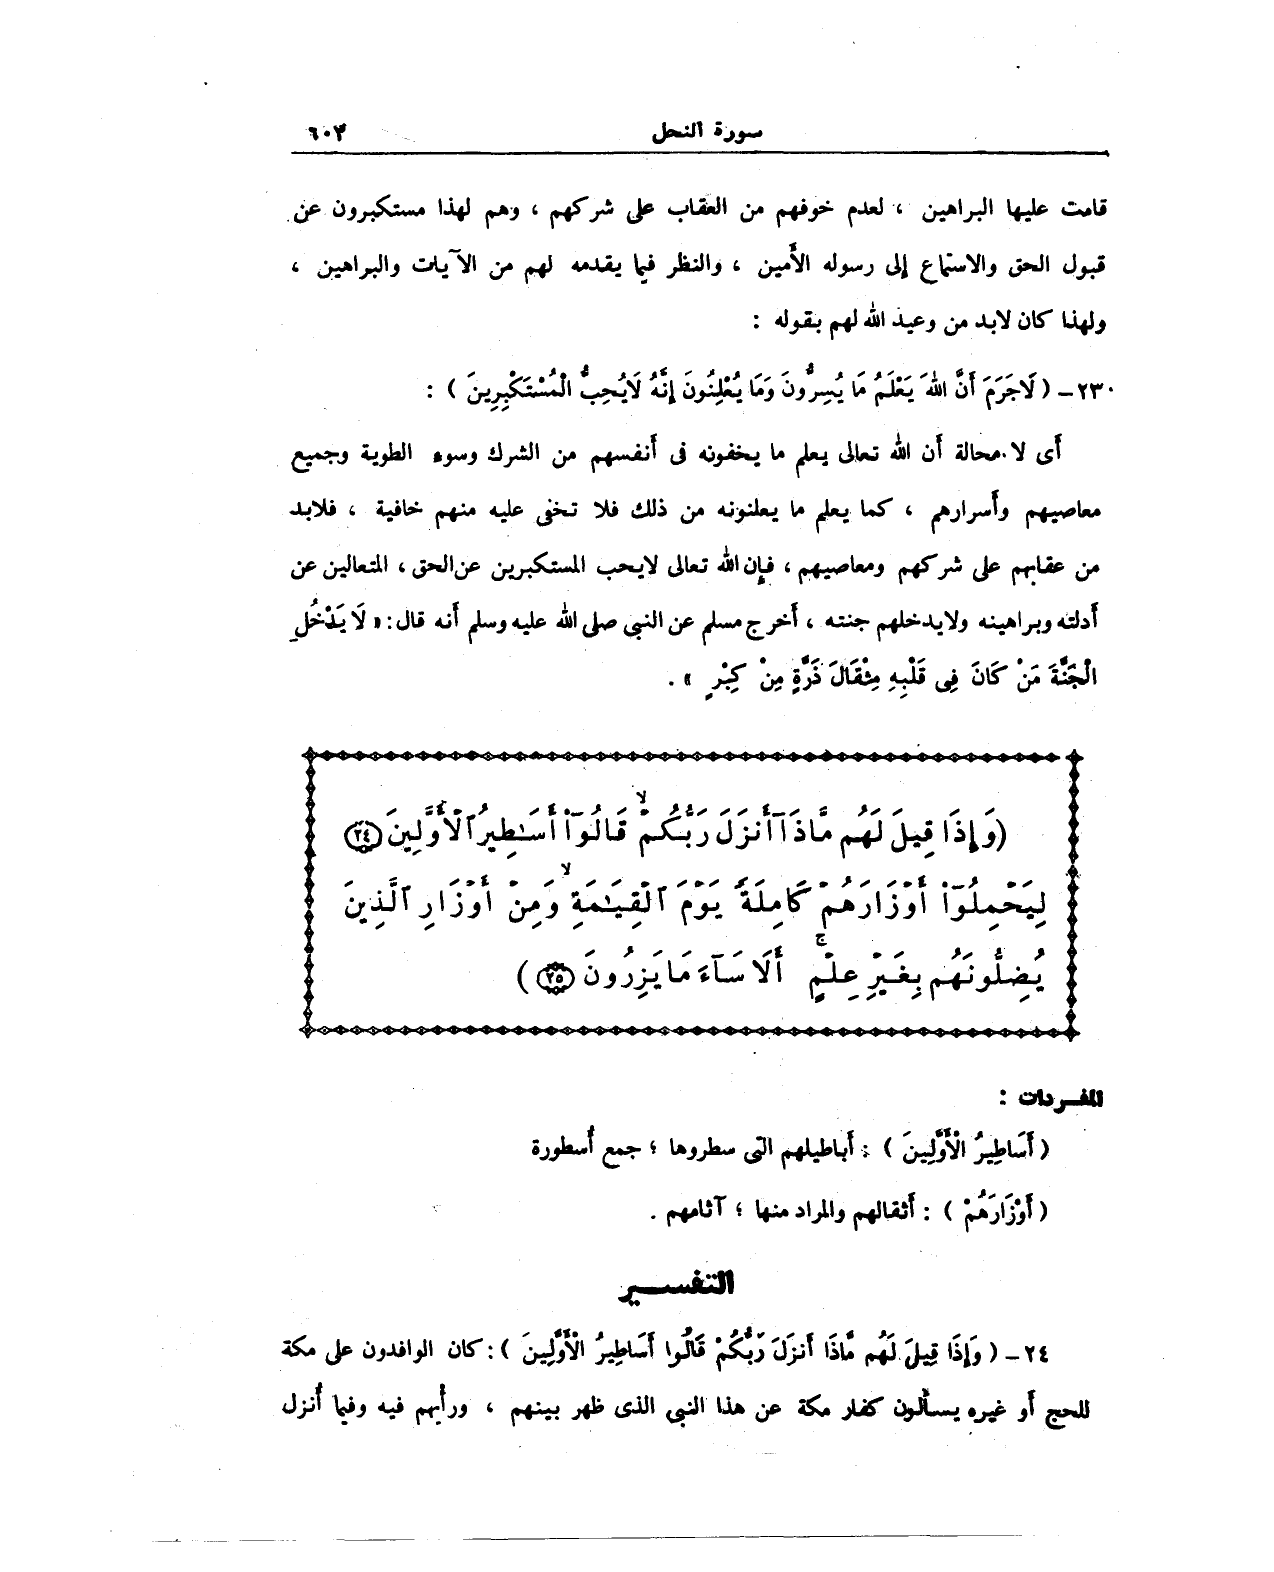 سورة النحل ٦٠٣
قامت عليها البراهين ، لعدم خوفهم من العقاب على شركهم ، وهم لهذا مستكبرون عن
قبول الحق والاستماع إلى رسوله الأمين ، والنظر فيما يقدمه لهم من الآيات والبراهين ،
ولهذا كان لابد من وعيد الله لهم بقوله :
٢٣- ( لَاجَرَمَ أَنَّ اللهَ يَعْلَمُ مَا يُسِرُّونَ وَمَا يُعْلِنُونَ إِنَّهُ لَايُحِبُّ الْمُسْتَكْبِرِينَ ) :
أى لا محالة أن الله تعالى يعلم ما يخفونه فى أنفسهم من الشرك وسوء الطوية وجميع
معاصيهم وأسرارهم ، كما يعلم ما يعلنونه من ذلك فلا تخفى عليه منهم خافية ، فلابد
من عقابهم على شركهم ومعاصيهم ، فإن الله تعالى لايحب المستكبرين عن الحق ، المتعالين عن
أدلته وبراهينه ولايدخلهم جنته ، أخرج مسلم عن النبى صلى الله عليه وسلم أنه قال : « لَا يَدْخُلِ
الْجَنَّةَ مَنْ كَانَ فِى قَلْبِهِ مِثْقَالَ ذَرَّةٍ مِنْ كِبْرٍ » .
(وَإِذَا قِيلَ لَهُم مَّاذَآ أَنزَلَ رَبُّكُمْ ۙ قَالُوٓاْ أَسَٰطِيرُ ٱلْأَوَّلِينَ ﴿٢٤﴾
لِيَحْمِلُوٓاْ أَوْزَارَهُمْ كَامِلَةً يَوْمَ ٱلْقِيَٰمَةِ ۙ وَمِنْ أَوْزَارِ ٱلَّذِينَ
يُضِلُّونَهُم بِغَيْرِ عِلْمٍ ۗ أَلَا سَآءَ مَا يَزِرُونَ ﴿٢٥﴾ )
المفردات :
( أَسَاطِيرُ الْأَوَّلِينَ ) : أباطيلهم التى سطروها ؛ جمع أسطورة
( أَوْزَارَهُمْ ) : أثقالهم والمراد منها ؛ آثامهم .
التفسير
٢٤- ( وَإِذَا قِيلَ لَهُم مَّاذَا أَنزَلَ رَبُّكُمْ قَالُوا أَسَاطِيرُ الْأَوَّلِينَ ) : كان الوافدون على مكة
للحج أو غيره يسألون كفار مكة عن هذا النبى الذى ظهر بينهم ، ورأيهم فيه وفيما أُنزل